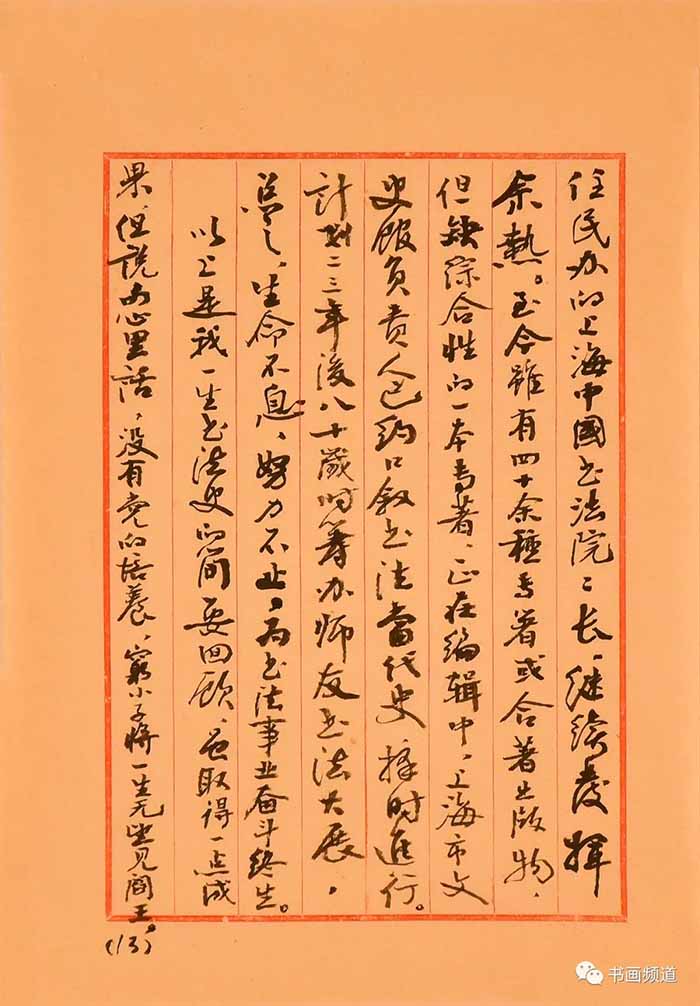 任民办的上海中国书法院〻长，继续发挥
余热。至今虽有四十余种专著或合著出版物，
但缺综合性的一本专著，正在编辑中，上海市文
史馆负责人已约口叙书法当代史，择时进行。
计划二三年後八十岁时筹办师友书法大展，
总之，生命不息，努力不止，为书法事业奋斗终生。
以上是我一生书法史的简要回顾，虽取得一点成
果，但说句心里话，没有党的培养，穷小子将一生无望见阎王。
(13)
书画频道